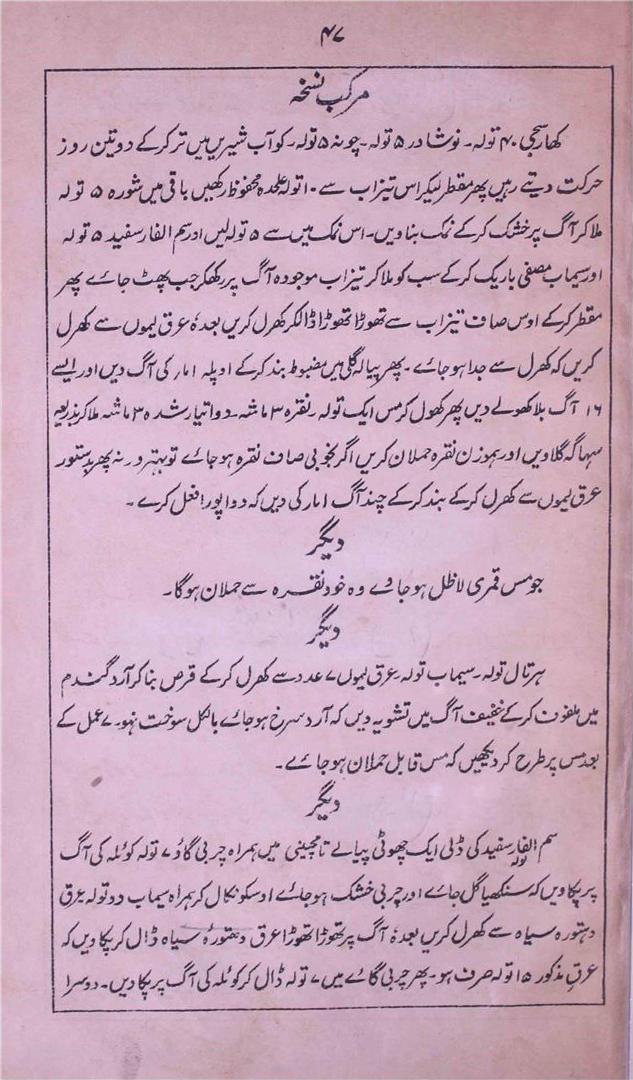 ۴۷
مرکب نسخہ
کھار سجی ۴۰ تولہ۔ نوشادر ۵ تولہ۔ چونہ ۵ تولہ۔ کو آب شیریں میں تر کر کے دو تین روز
حرکت دیتے رہیں پھر مقطر لیکر اس تیزاب سے ۱۰ تولہ علحدہ محفوظ رکھیں باقی میں شورہ ۵ تولہ
ملا کر آگ پر خشک کر کے نمک بناویں۔ اس نمک میں سے ۵ تولہ لیں اور سم الفار سفید ۵ تولہ
اور سیماب مصفی باریک کر کے سب کو ملا کر تیزاب موجودہ آگ پر رکھکر جب پھٹ جائے پھر
مقطر کر کے اوس صاف تیزاب سے تھوڑا تھوڑا ڈالکر کھرل کریں بعدہٗ عرق لیموں سے کھرل
کریں کہ کھرل سے جدا ہو جائے۔ پھر پیالہ گلی میں مضبوط بند کر کے اوپلہ ۱مار کی آگ دیں اور ایسے
۱۶ آگ بلا کھولے دیں پھر کھول کر مس ایک تولہ۔ نقرہ ۳ ماشہ۔ دوا تیار شدہ ۳ ماشہ ملا کر بذریعہ
سہاگہ گلاویں اور ہموزن نقرہ حملان کریں اگر بخوبی صاف نقرہ ہو جائے تو بہتر ورنہ پھر بدستور
عرق لیموں سے کھرل کر کے بند کر کے چند آگ ۱مار کی دیں کہ دوا پورا فعل کرے۔
دیگر
جو مس قمری لاظل ہو جاوے وہ خود نقرہ سے حملان ہوگا۔
دیگر
ہرتال تولہ۔ سیماب تولہ۔ عرق لیموں ۷ عدد سے کھرل کر کے قرص بنا کر آرد گندم
میں ملفوف کر کے خفیف آگ میں تشویہ دیں کہ آرد سرخ ہو جائے بالکل سوخت نہو۔ ۷ عمل کے
بعد مس پر طرح کر دیکھیں کہ مس قابل حملان ہو جائے۔
دیگر
سم الفار سفید تولہ کی ڈلی ایک چھوٹی پیالے تامچینی میں ہمراہ چربی گاؤ ۷ تولہ کوئلہ کی آگ
پر پکاویں کہ سنکھیا گل جائے اور چربی خشک ہو جائے اوسکو نکال کر ہمراہ سیماب دو تولہ عرق
دہتورہ سیاہ سے کھرل کریں بعدہٗ آگ پر تھوڑا تھوڑا عرق دہتورہٗ سیاہ ڈال کر پکاویں کہ
عرق مذکور ۱۵ تولہ صرف ہو۔ پھر چربی گائے میں ۷ تولہ ڈال کر کوئلہ کی آگ پر پکا دیں۔ دوسرا